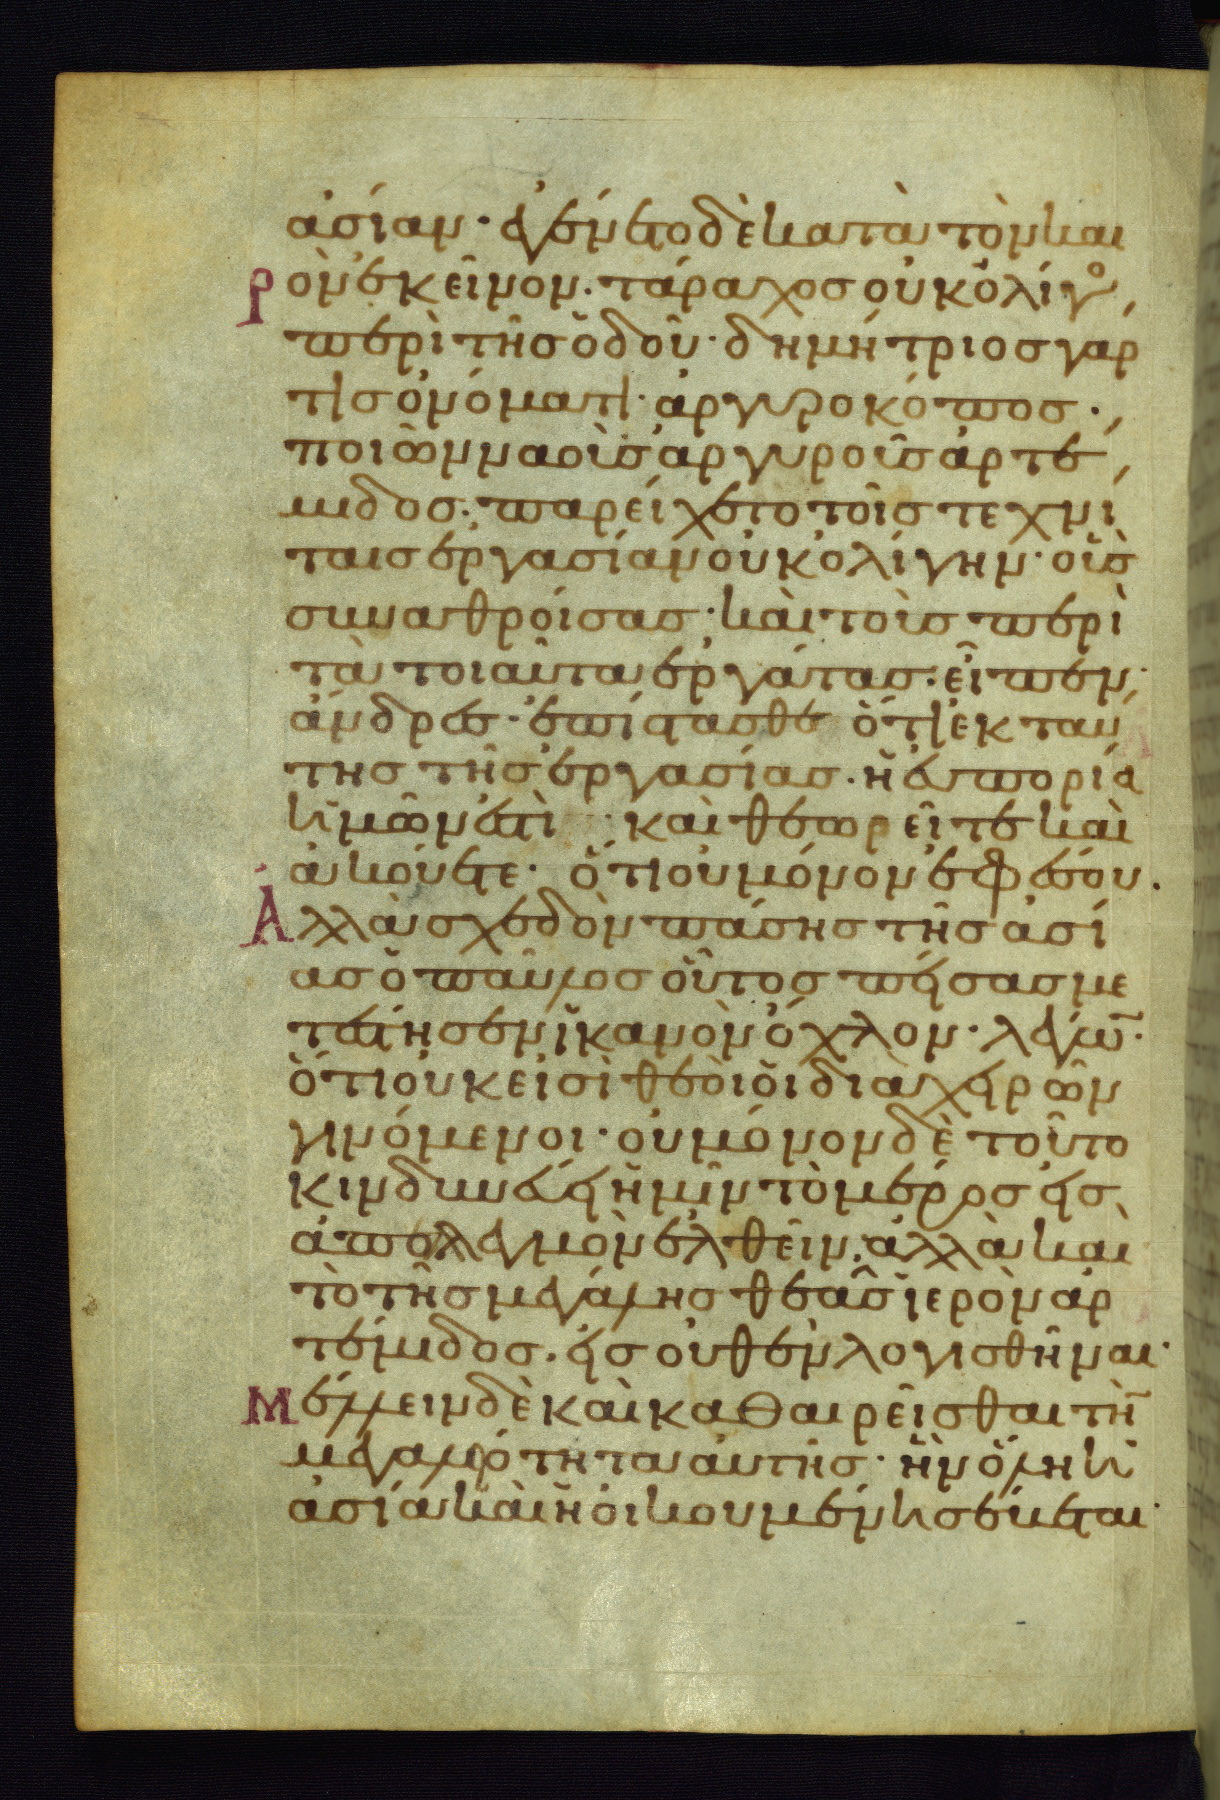 ἀσίαν· ἐγένετο δὲ κατὰ τὸν και
ρὸν ἐκεῖνον· τάραχος οὐκ ὀλίγο
περὶ τῆς ὁδοῦ· δημήτριος γάρ
τις ὀνόματι· ἀργυροκόπος·
ποιῶν ναοὺς ἀργυροῦς ἀρτέ
μιδος· παρείχετο τοῖς τεχνί
ταις ἐργασίαν οὐκ ὀλίγην· οὓς
συναθροίσας· καὶ τοὺς περὶ
τὰ τοιαῦτα ἐργάτας· εἶπεν·
ἄνδρες· ἐπίστασθε ὅτι ἐκ ταύ
της τῆς ἐργασίας· ἡ εὐπορία
ἡμῶν ἐστὶ· καὶ θεωρεῖτε καὶ
ἀκούετε· ὅτι οὐ μόνον ἐφέσου·
Ἀλλὰ σχεδὸν πάσης τῆς ἀσί
ας ὁ παῦλος οὗτος πείσας με
τέστησεν ἱκανὸν ὄχλον· λέγω̅·
ὅτι οὐκ εἰσὶ θεοὶ οἱ διὰ χειρῶν
γινόμενοι· οὐ μόνον δὲ τοῦτο
κινδυνεύει ἡμῖν τὸ μέρος εἰς
ἀπελεγμὸν ἐλθεῖν· ἀλλὰ καὶ
τὸ τῆς μεγάλης θεᾶς ἱερὸν ἀρ
τέμιδος· εἰς οὐθὲν λογισθῆναι·
Μέλλειν δὲ καὶ καθαιρεῖσθαι τὴ̅
μεγαλιότητα αὐτῆς· ἣν ὅλη ἡ
ἀσία καὶ ἡ οἰκουμένη σέβεται·